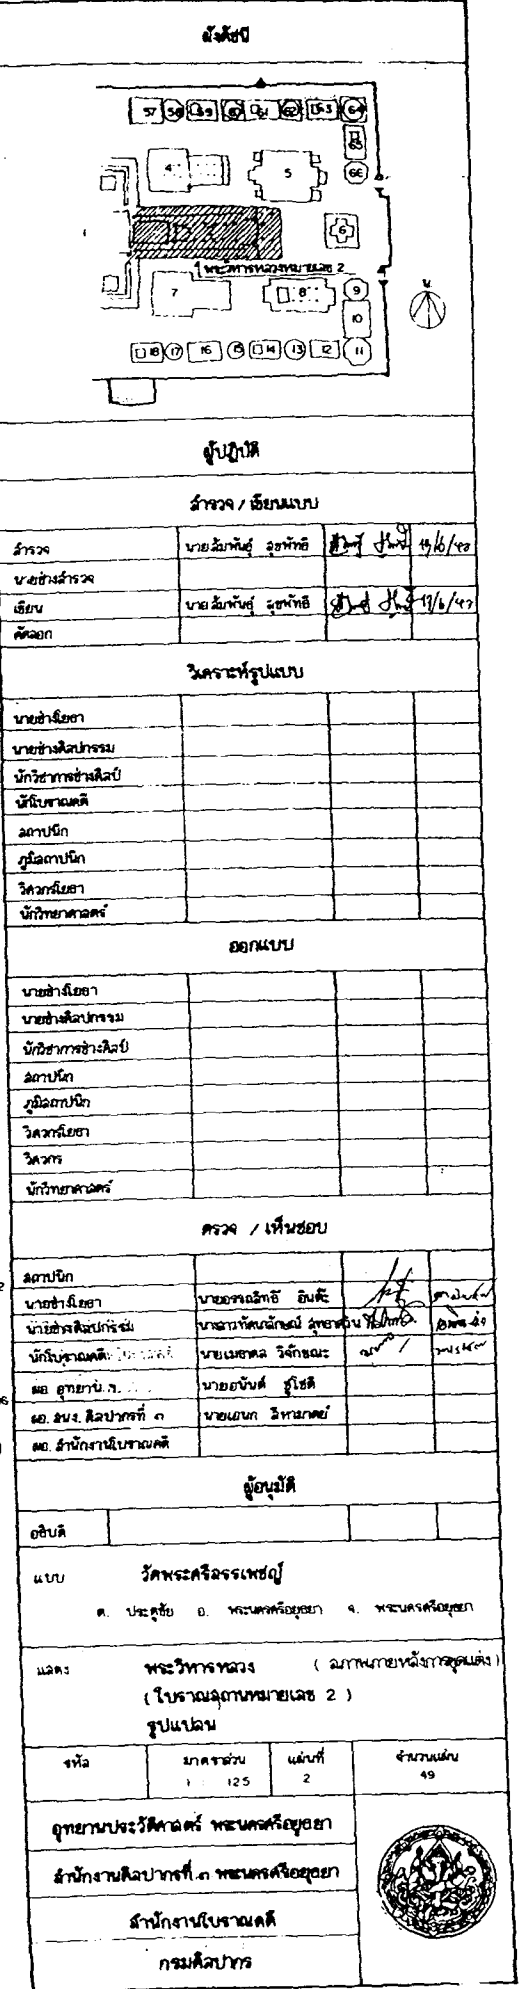 ผังดัชนี
57 58 59 60 61 62 63 64
65
4 5 66
6
พระวิหารหลวงหมายเลข 2
น.
7 8 9
10
18 17 16 15 14 13 12 11
ผู้ปฏิบัติ
สำรวจ / เขียนแบบ
สำรวจ นายสัมพันธ์ สุขพัทธี
นายช่างสำรวจ
เขียน นายสัมพันธ์ สุขพัทธี
คัดลอก
วิเคราะห์รูปแบบ
นายช่างโยธา
นายช่างศิลปกรรม
นักวิชาการช่างศิลป์
นักโบราณคดี
สถาปนิก
ภูมิสถาปนิก
วิศวกรโยธา
นักวิทยาศาสตร์
ออกแบบ
นายช่างโยธา
นายช่างศิลปกรรม
นักวิชาการช่างศิลป์
สถาปนิก
ภูมิสถาปนิก
วิศวกรโยธา
วิศวกร
นักวิทยาศาสตร์
ตรวจ / เห็นชอบ
สถาปนิก
นายช่างโยธา นายอรรถสิทธิ์ อินต๊ะ
นายช่างศิลปกรรม
นักโบราณคดี นายเมธาดล วิจักขณะ
ผอ. อุทยาน ฯ. นายอนันต์ ชูโชติ
ผอ. สนง. ศิลปากรที่ ๓ นายเอนก สีหามาตย์
ผอ. สำนักงานโบราณคดี
ผู้อนุมัติ
อธิบดี
แบบ วัดพระศรีสรรเพชญ์
ต. ประตูชัย อ. พระนครศรีอยุธยา จ. พระนครศรีอยุธยา
แสดง พระวิหารหลวง ( สภาพภายหลังการขุดแต่ง )
( โบราณสถานหมายเลข 2 )
รูปแปลน
รหัส มาตราส่วน แผ่นที่ จำนวนแผ่น
1 : 125 2 49
อุทยานประวัติศาสตร์ พระนครศรีอยุธยา
สำนักงานศิลปากรที่ ๓ พระนครศรีอยุธยา
สำนักงานโบราณคดี
กรมศิลปากร